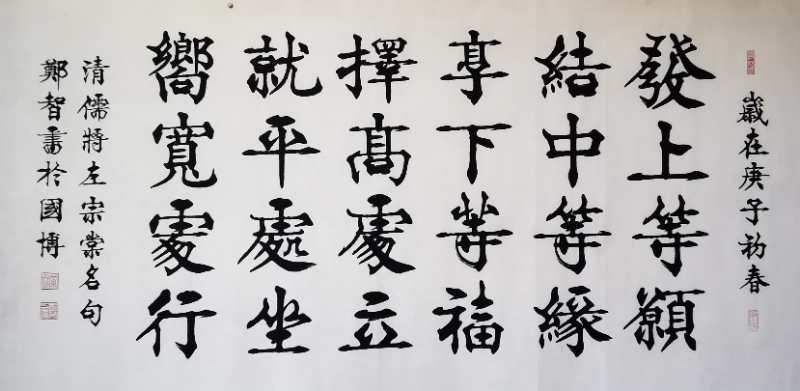 歲在庚子初春
發上等願
結中等緣
享下等福
擇高處立
就平處坐
嚮寬處行
清儒將左宗棠名句
鄭智書於國博